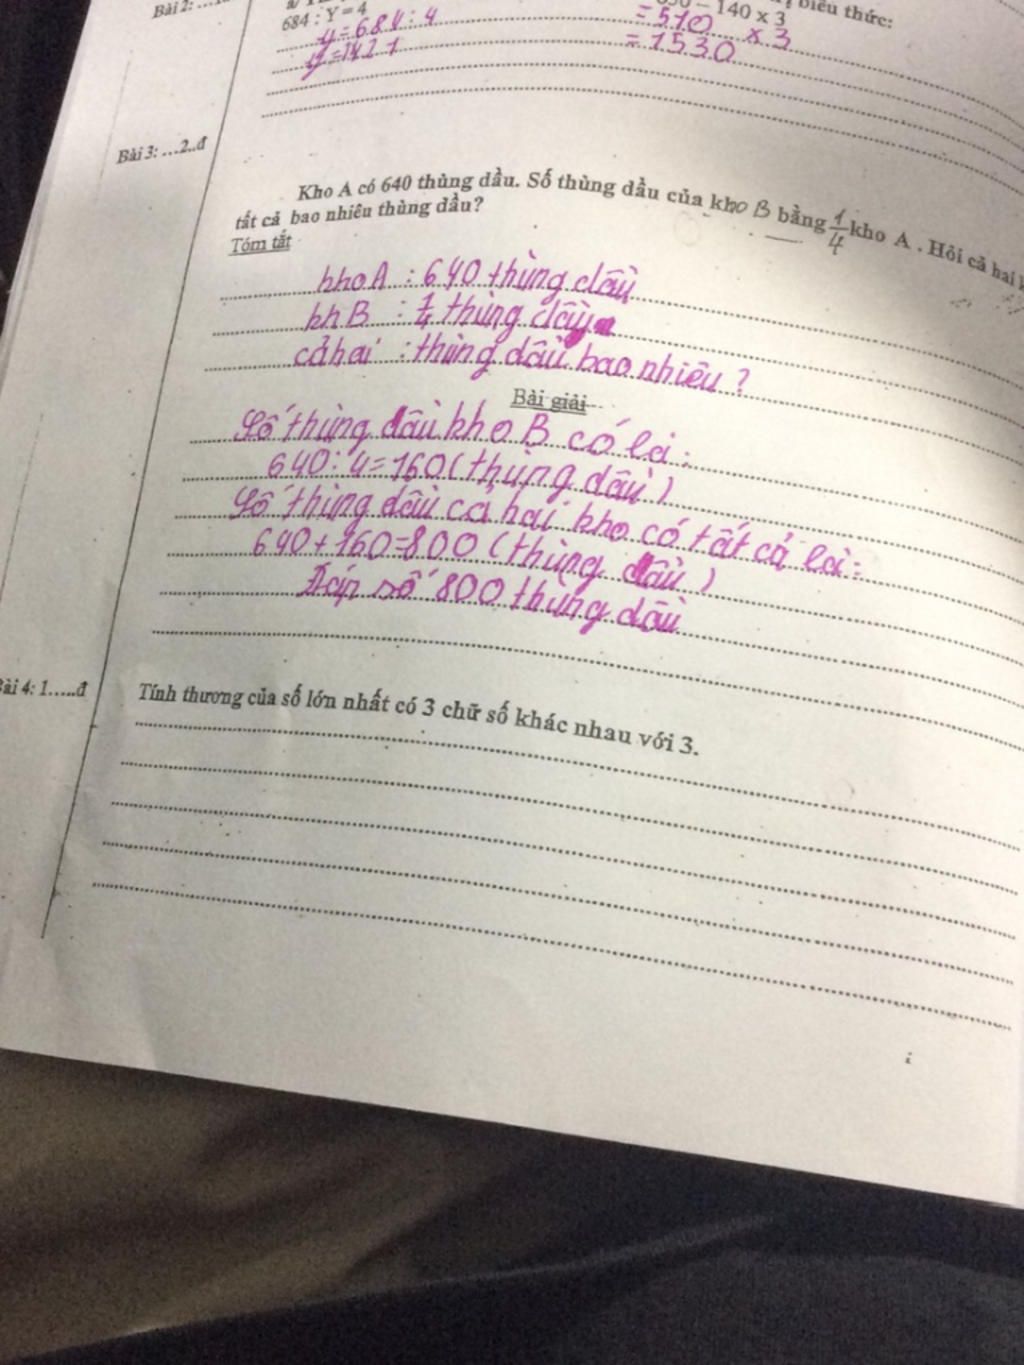 Bài 2: ....
684 : Y = 4
y = 684 : 4
y = 1421
biểu thức:
- 140 x 3
= 510 x 3
= 1530
Bài 3: ...2..đ
Kho A có 640 thùng dầu. Số thùng dầu của kho B bằng 1/4 kho A . Hỏi cả hai
tất cả bao nhiêu thùng dầu?
Tóm tắt
kho A : 640 thùng dầu
kh B : 1/4 thùng dầu
cả hai : thùng dầu bao nhiêu ?
Bài giải
Số thùng dầu kho B có là :
640 : 4 = 160 ( thùng dầu )
Số thùng dầu cả hai kho có tất cả là :
640 + 160 = 800 ( thùng dầu )
Đáp số 800 thùng dầu
Bài 4: 1.....đ
Tính thương của số lớn nhất có 3 chữ số khác nhau với 3.